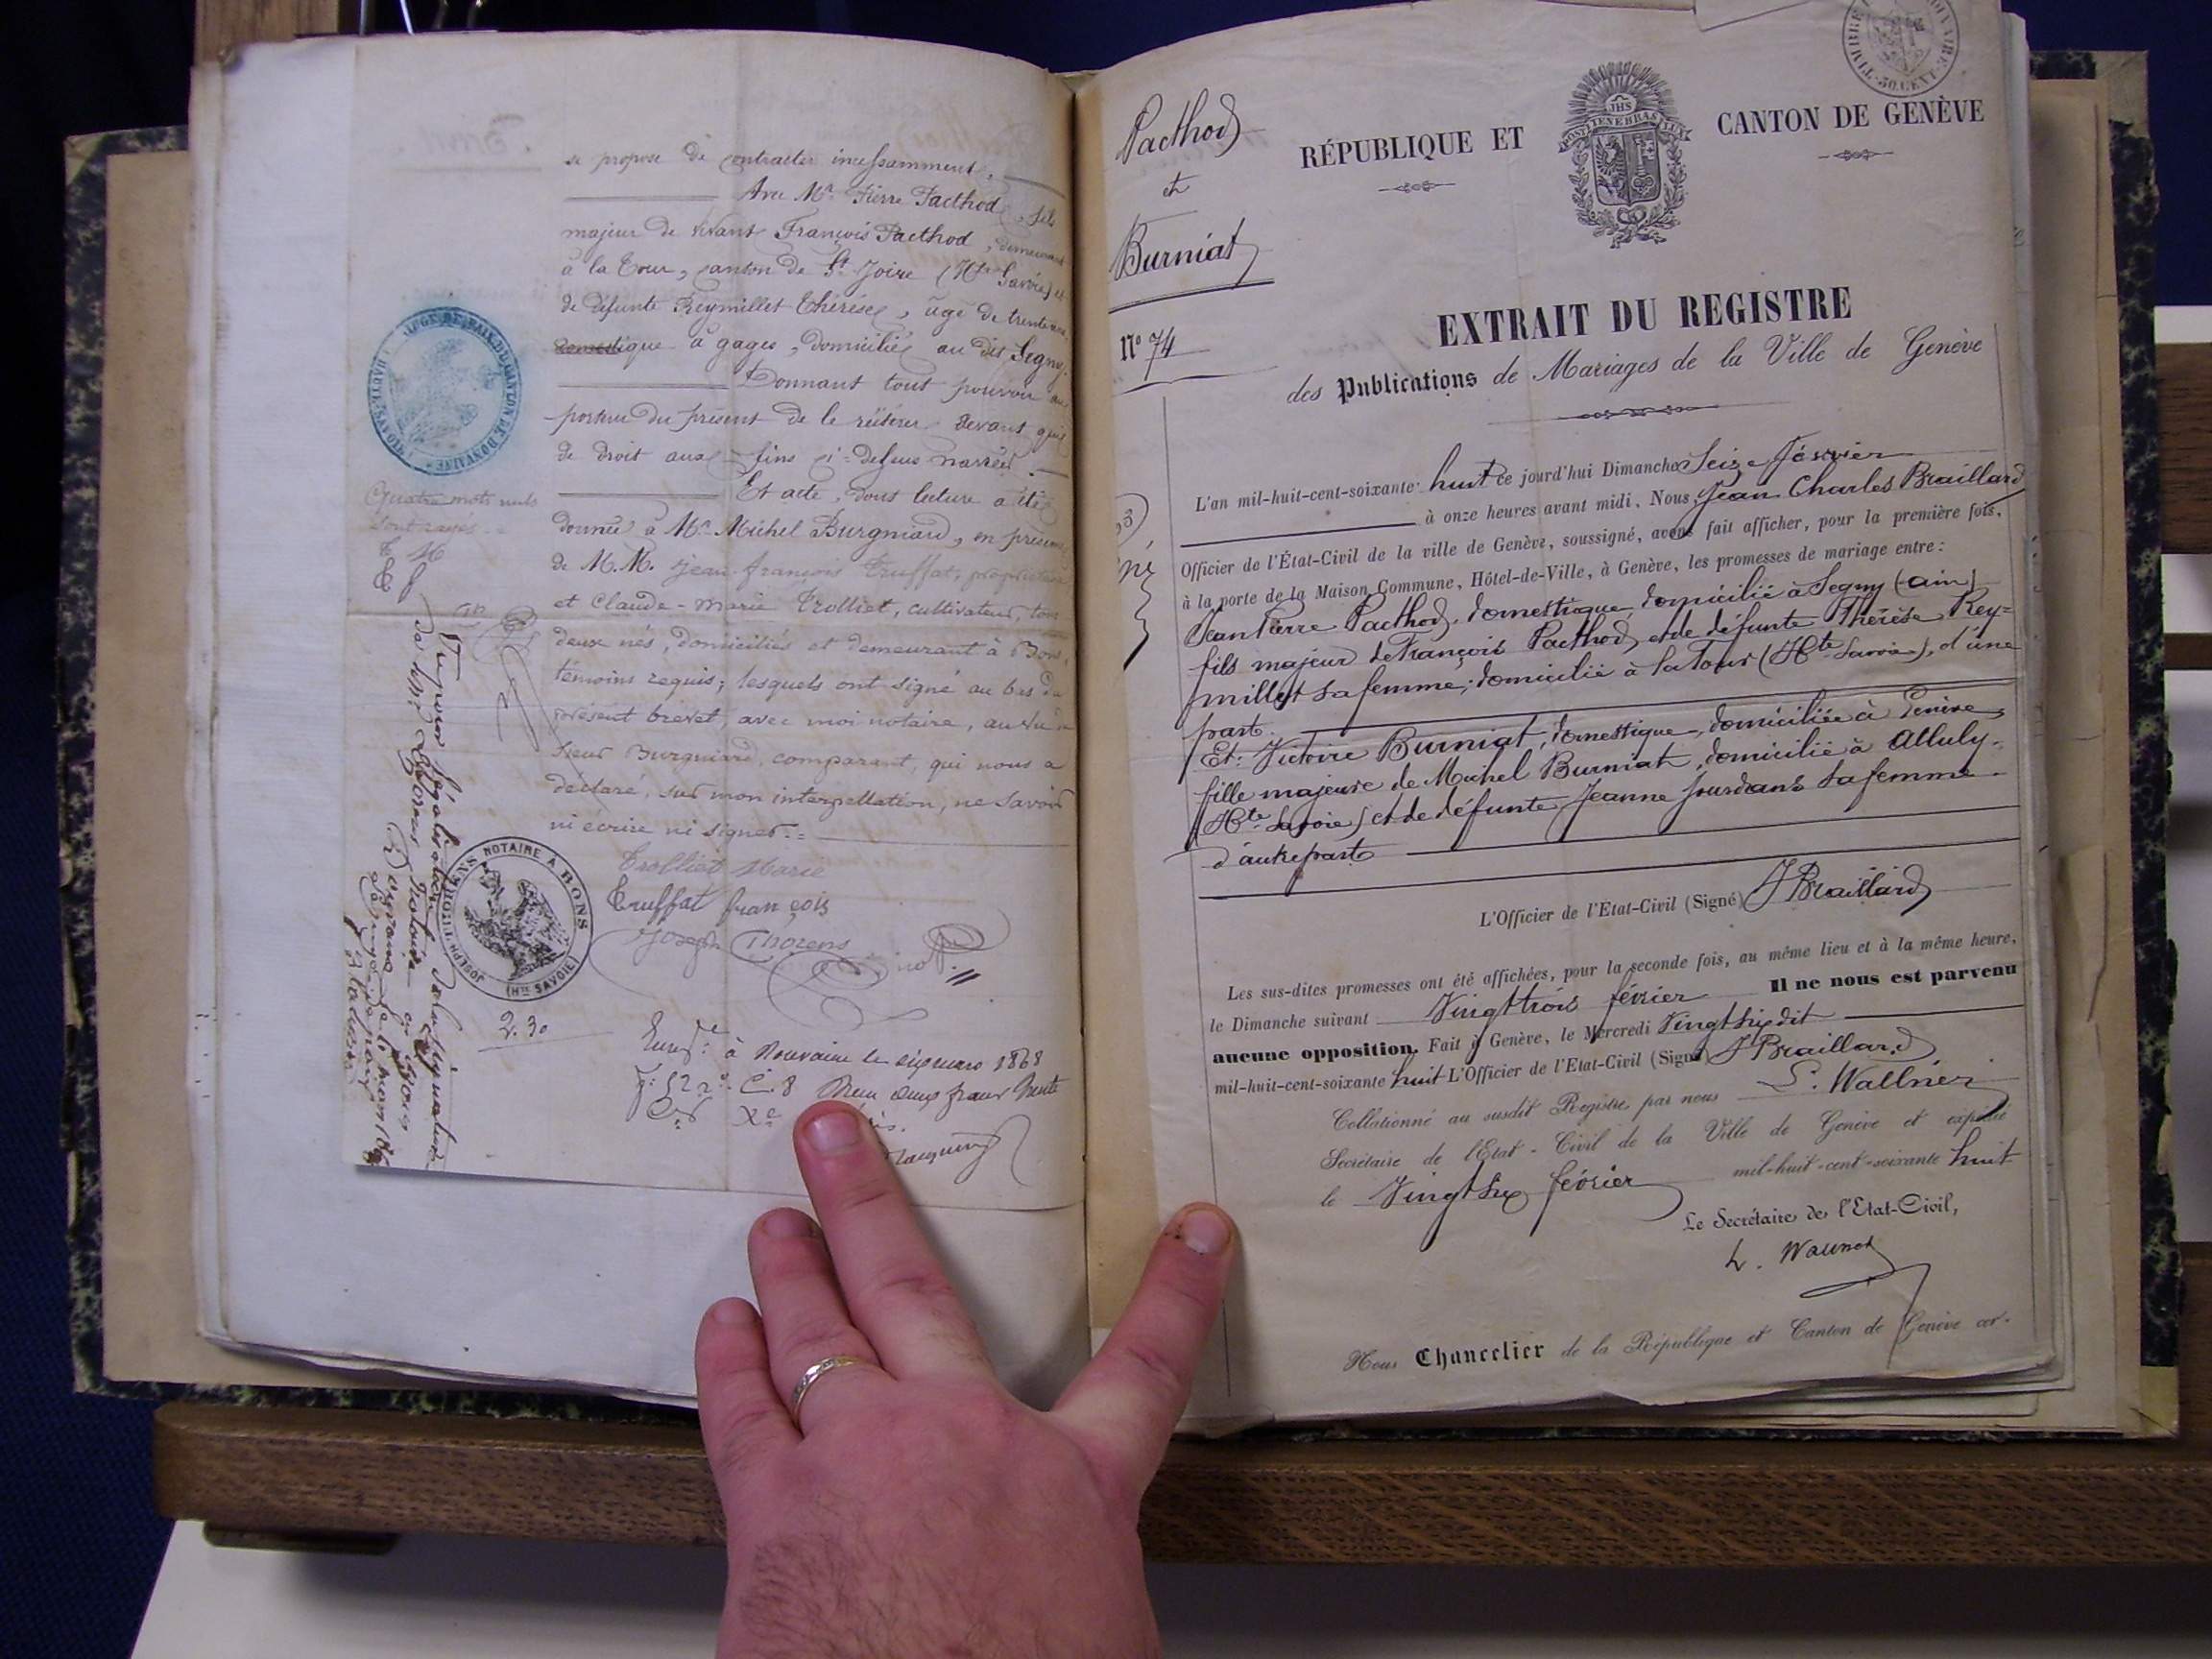 se propose de contracter incessamment,
Avec Mr. Pierre Pacthod, fils
majeur de vivant François Pacthod, demeurant
à la Tour, canton de St. Joire (Hte Savoie) et
de défunte Reymillet Thérèse, âgé de trente
domestique à gages, domicilié au dit Segny.
Donnant tout pouvoir au
porteur du présent de le réitérer devant qui
de droit aux fins ci-dessus narrées.
Et acte, dont lecture a été
donnée à Mr. Michel Burgniard, en présence
de M.M. Jean-françois Truffat, propriétaire
et Claude-Marie Trolliet, cultivateur, tous
deux nés, domiciliés et demeurant à Bons,
témoins requis; lesquels ont signé au bas du
présent brevet, avec moi notaire, au
sieur Burgniard, comparant, qui nous a
déclaré, sur mon interpellation, ne savoir
ni écrire ni signer.
Trolliet Marie
Truffat françois
Joseph Thorens not.
Quatre mots nuls
sont rayés.
JUGE DE PAIX DU CANTON DE DOUVAINE
HAUTE-SAVOIE
Vu pour légalisation de la signature
de Me Thorens Notaire à Bons
Douvaine le 6 mars 1868
Le juge de paix
JOSEPH THORENS NOTAIRE A BONS
(HTE SAVOIE)
2.30
Enregé. à Douvaine le six mars 1868
fo. 52 ro. C. 8 Reçu deux francs trente
Pacthod
et
Burniat
No 74
RÉPUBLIQUE ET
CANTON DE GENÈVE
JHS
POST TENEBRAS LUX
TIMBRE
50 CENT
EXTRAIT DU REGISTRE
des Publications de Mariages de la Ville de Genève
L'an mil-huit-cent-soixante-huit ce jourd'hui Dimanche Seize février
à onze heures avant midi, Nous Jean Charles Braillard
Officier de l'État-Civil de la ville de Genève, soussigné, avons fait afficher, pour la première fois,
à la porte de la Maison Commune, Hôtel-de-Ville, à Genève, les promesses de mariage entre:
Jean Pierre Pacthod, domestique, domicilié à Segny (ain)
fils majeur de François Pacthod, et de défunte Thérèse Rey=
millet sa femme, domicilié à la Tour (Hte Savoie), d'une
part.
Et: Victoire Burniat, domestique, domiciliée à Genève,
fille majeure de Michel Burniat, domicilié à Alluly.
(Hte Savoie) et de défunte Jeanne Jourdans sa femme.
d'autre part
L'Officier de l'Etat-Civil (Signé) J Braillard
Les sus-dites promesses ont été affichées, pour la seconde fois, au même lieu et à la même heure,
le Dimanche suivant Vingt trois février Il ne nous est parvenu
aucune opposition. Fait à Genève, le Mercredi Vingt six dit
mil-huit-cent-soixante huit L'Officier de l'Etat-Civil (Signé) J Braillard
Collationné au susdit Registre par nous L. Wallner
Secrétaire de l'Etat-Civil de la Ville de Genève et expédié
le Vingt six février mil-huit-cent-soixante huit
Le Secrétaire de l'Etat-Civil,
Nous Chancelier de la République et Canton de Genève cer-